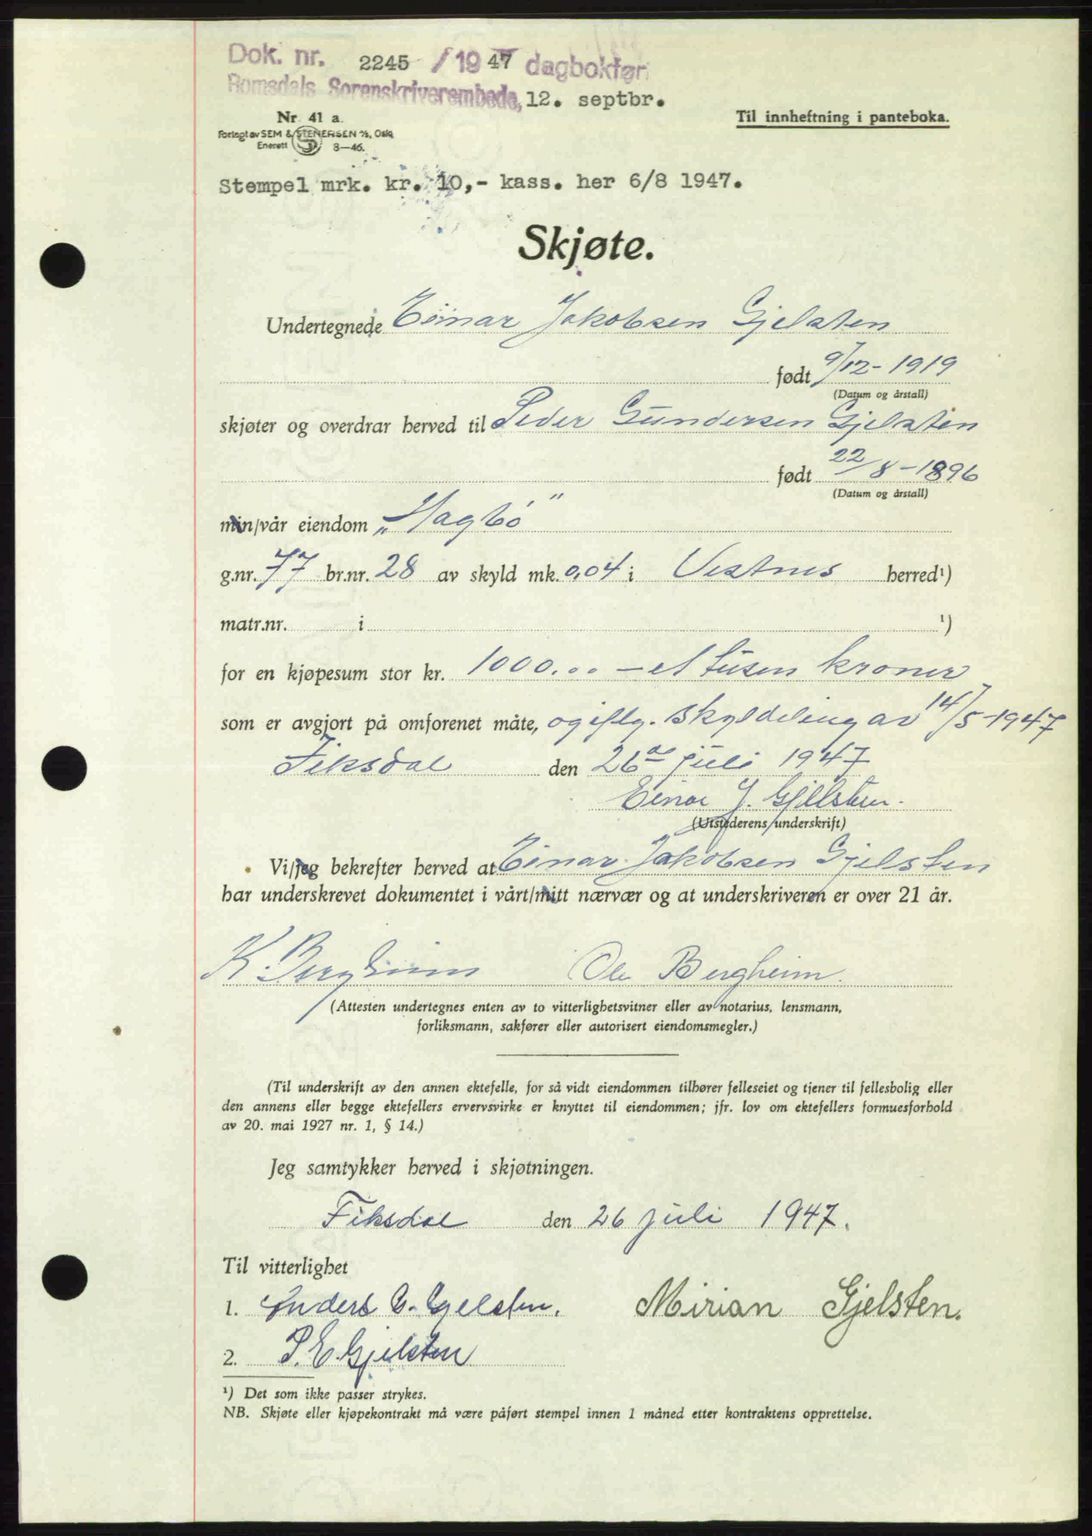 Dok. nr. 2245 / 1947 dagbokført
Romsdals Sorenskriverembede, 12. septbr.
Nr. 41 a.
Til innheftning i panteboka.
Forlagt av SEM & STENERSEN A/S, Oslo
Enerett 8-46.
Stempel mrk. kr. 10,- kass. her 6/8 1947.
Skjøte.
Undertegnede Einar Jakobsen Gjelsten
født 9/12-1919
(Datum og årstall)
skjøter og overdrar herved til Peder Gundersen Gjelsten
født 22/8-1896
(Datum og årstall)
min/vår eiendom „Hagbø"
g.nr. 77 br.nr. 28 av skyld mk. 0,04 i Vestnes herred¹)
matr.nr. i ¹)
for en kjøpesum stor kr. 1000.00 - et tusen kroner
som er avgjort på omforenet måte, og iflg. skylddeling av 14/5-1947
Fiksdal den 26de juli 1947
Einar J. Gjelsten.
(Utstederens underskrift)
Vi/jeg bekrefter herved at Einar Jakobsen Gjelsten
har underskrevet dokumentet i vårt/mitt nærvær og at underskriveren er over 21 år.
K. Bergheim Ole Bergheim.
(Attesten undertegnes enten av to vitterlighetsvitner eller av notarius, lensmann,
forliksmann, sakfører eller autorisert eiendomsmegler.)
(Til underskrift av den annen ektefelle, for så vidt eiendommen tilhører felleseiet og tjener til fellesbolig eller
den annens eller begge ektefellers ervervsvirke er knyttet til eiendommen; jfr. lov om ektefellers formuesforhold
av 20. mai 1927 nr. 1, § 14.)
Jeg samtykker herved i skjøtningen.
Fiksdal den 26 juli 1947.
Til vitterlighet
1. Anders G. Gjelsten. Mirian Gjelsten.
2. P. E. Gjelsten
¹) Det som ikke passer strykes.
NB. Skjøte eller kjøpekontrakt må være påført stempel innen 1 måned etter kontraktens opprettelse.